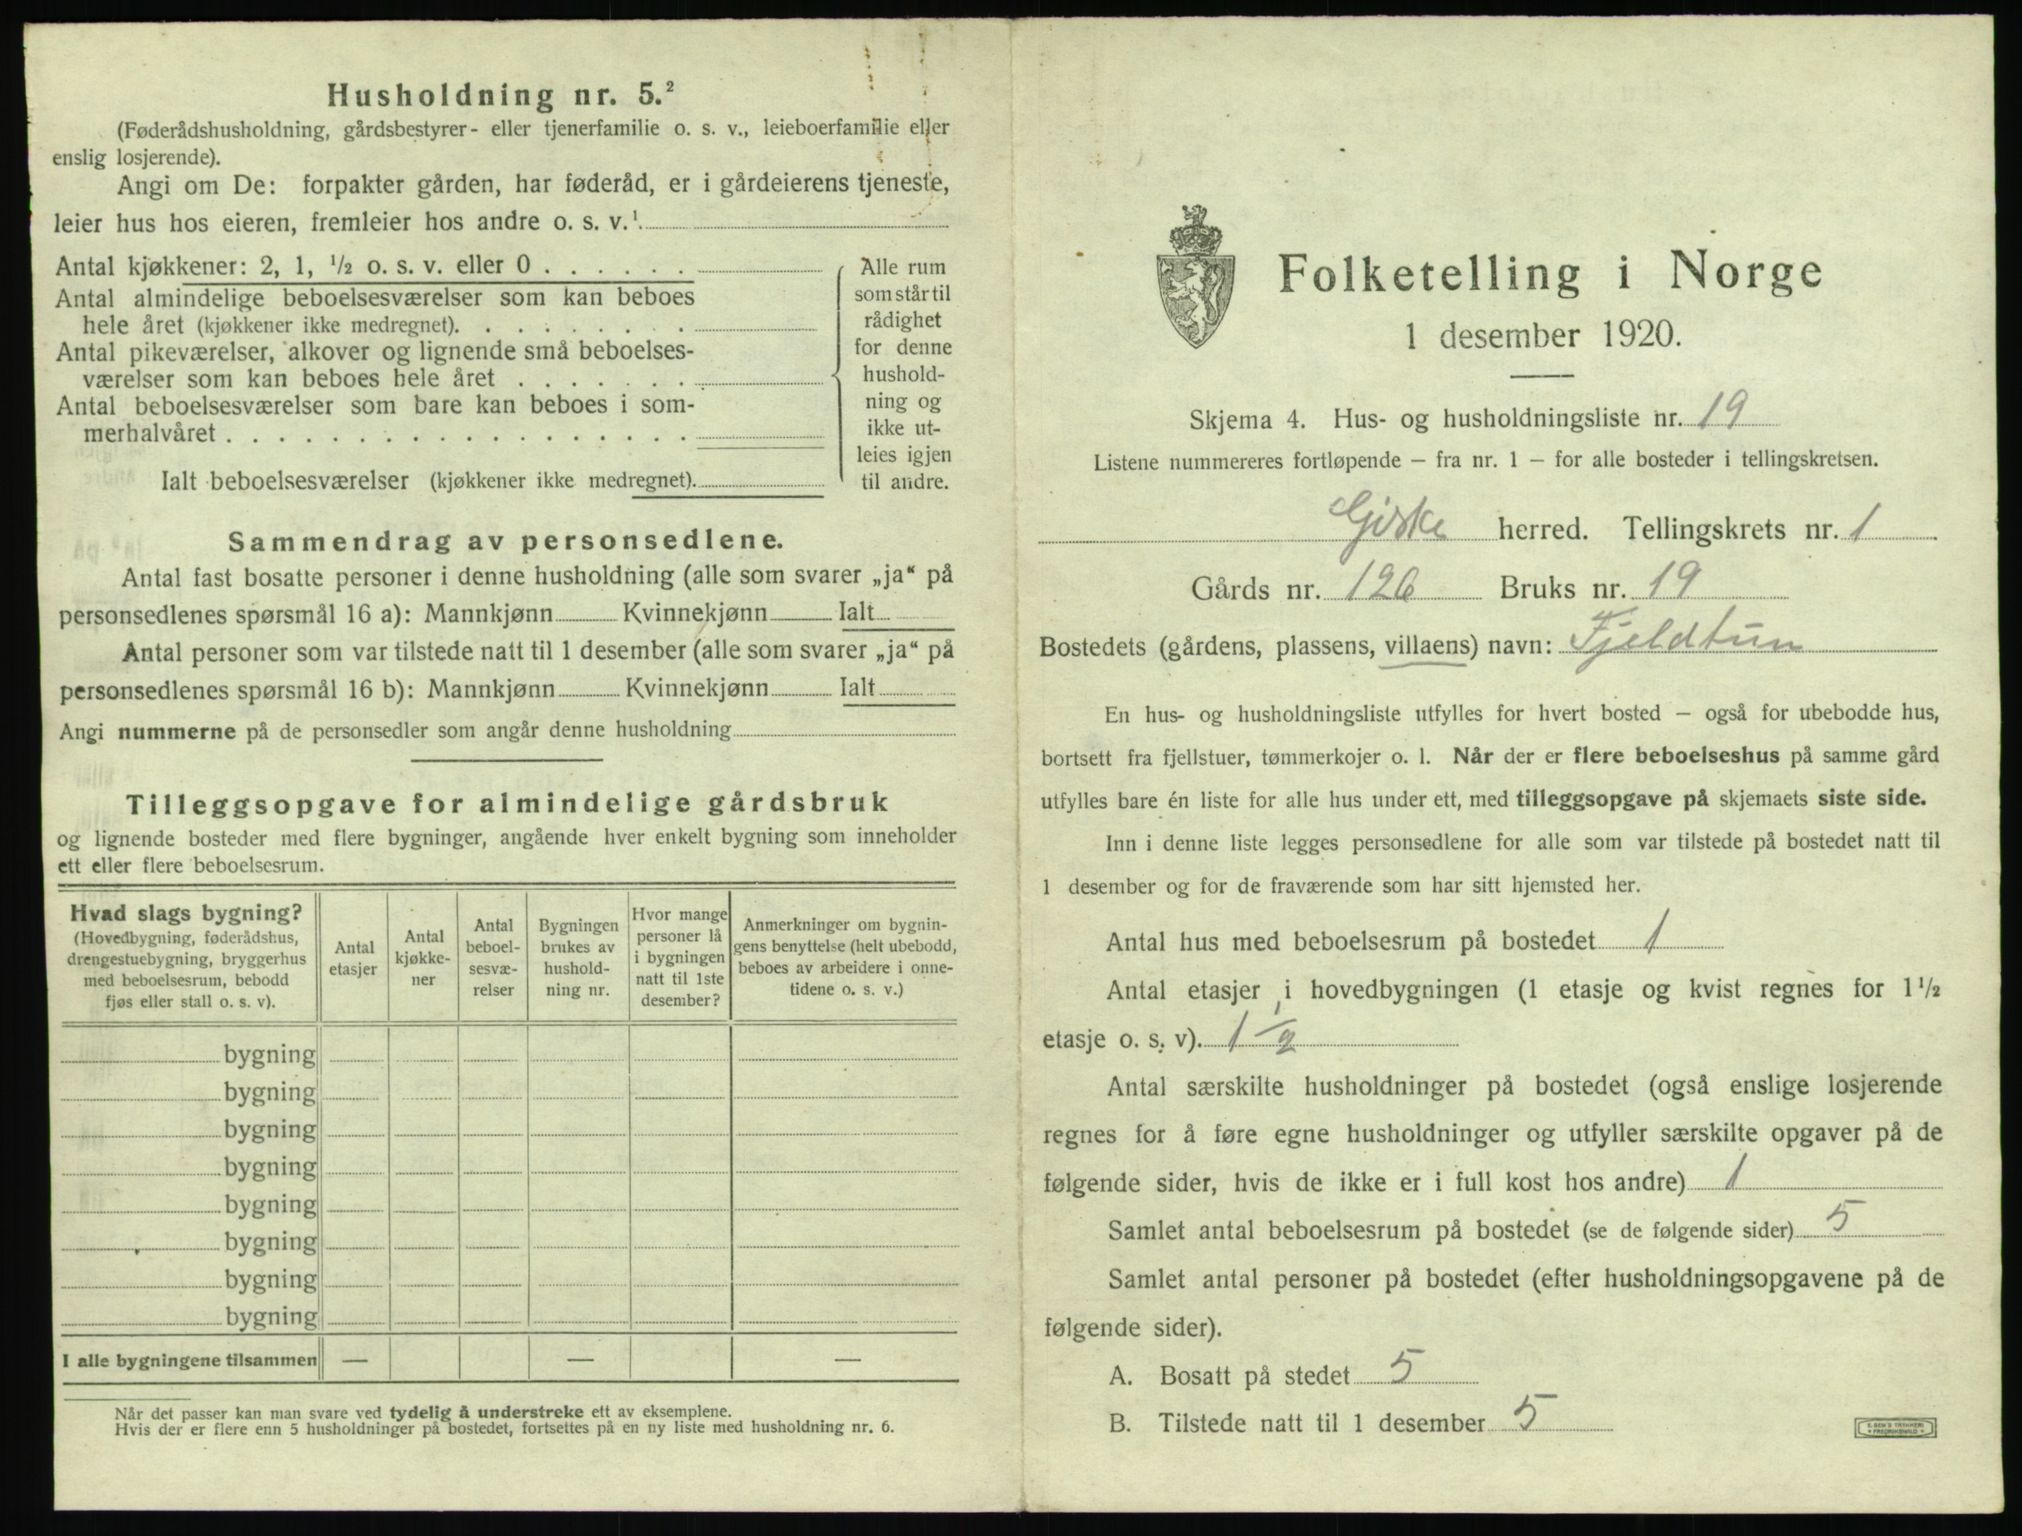 Husholdning nr. 5.²
(Føderådshusholdning, gårdsbestyrer- eller tjenerfamilie o. s. v., leieboerfamilie eller
enslig losjerende).
Angi om De: forpakter gården, har føderåd, er i gårdeierens tjeneste,
leier hus hos eieren, fremleier hos andre o. s. v.¹
Antal kjøkkener: 2, 1, ½ o. s. v. eller 0 . . . . . .
Antal almindelige beboelsesværelser som kan beboes
hele året (kjøkkener ikke medregnet). . . . . . . . .
Antal pikeværelser, alkover og lignende små beboelses-
værelser som kan beboes hele året . . . . . . .
Antal beboelsesværelser som bare kan beboes i som-
merhalvåret . . . . . . . . . . . . . . . . . .
Ialt beboelsesværelser (kjøkkener ikke medregnet).
Alle rum
som står til
rådighet
for denne
hushold-
ning og
ikke ut-
leies igjen
til andre.
Sammendrag av personsedlene.
Antal fast bosatte personer i denne husholdning (alle som svarer „ja“ på
personsedlenes spørsmål 16 a): Mannkjønn Kvinnekjønn Ialt
Antal personer som var tilstede natt til 1 desember (alle som svarer „ja“ på
personsedlenes spørsmål 16 b): Mannkjønn Kvinnekjønn Ialt
Angi nummerne på de personsedler som angår denne husholdning
Tilleggsopgave for almindelige gårdsbruk
og lignende bosteder med flere bygninger, angående hver enkelt bygning som inneholder
ett eller flere beboelsesrum.
Hvad slags bygning?
(Hovedbygning, føderådshus,
drengestuebygning, bryggerhus
med beboelsesrum, bebodd
fjøs eller stall o. s. v).
Antal
etasjer
Antal
kjøkke-
ner
Antal
beboel-
sesvæ-
relser
Bygningen
brukes av
hushold-
ning nr.
Hvor mange
personer lå
i bygningen
natt til 1ste
desember?
Anmerkninger om bygnin-
gens benyttelse (helt ubebodd,
beboes av arbeidere i onne-
tidene o. s. v.)
bygning
bygning
bygning
bygning
bygning
bygning
bygning
bygning
I alle bygningene tilsammen — — —
Når det passer kan man svare ved tydelig å understreke ett av eksemplene.
Hvis der er flere enn 5 husholdninger på bostedet, fortsettes på en ny liste med husholdning nr. 6.
Folketelling i Norge
1 desember 1920.
Skjema 4. Hus- og husholdningsliste nr. 19
Listene nummereres fortløpende – fra nr. 1 – for alle bosteder i tellingskretsen.
Giske herred. Tellingskrets nr. 1
Gårds nr. 126 Bruks nr. 19
Bostedets (gårdens, plassens, villaens) navn: Fjeldtun
En hus- og husholdningsliste utfylles for hvert bosted – også for ubebodde hus,
bortsett fra fjellstuer, tømmerkojer o. l. Når der er flere beboelseshus på samme gård
utfylles bare én liste for alle hus under ett, med tilleggsopgave på skjemaets siste side.
Inn i denne liste legges personsedlene for alle som var tilstede på bostedet natt til
1 desember og for de fraværende som har sitt hjemsted her.
Antal hus med beboelsesrum på bostedet 1
Antal etasjer i hovedbygningen (1 etasje og kvist regnes for 1½
etasje o. s. v). 1 ½
Antal særskilte husholdninger på bostedet (også enslige losjerende
regnes for å føre egne husholdninger og utfyller særskilte opgaver på de
følgende sider, hvis de ikke er i full kost hos andre) 1
Samlet antal beboelsesrum på bostedet (se de følgende sider) 5
Samlet antal personer på bostedet (efter husholdningsopgavene på de
følgende sider).
A. Bosatt på stedet 5
B. Tilstede natt til 1 desember 5